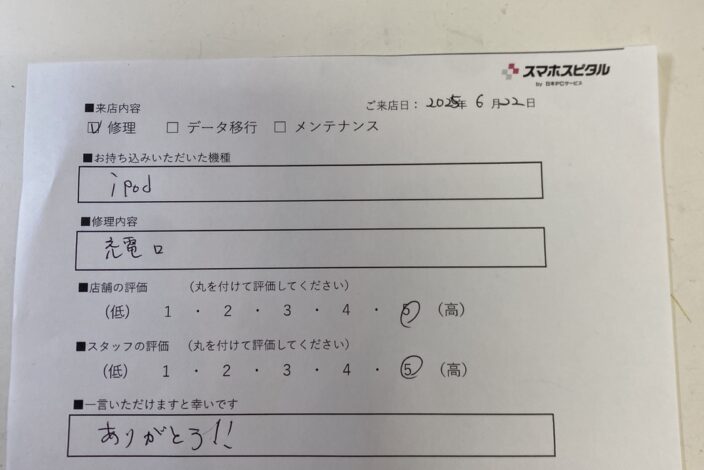 スマホスピタル
by 日本PCサービス
■来店内容
ご来店日： 2025年 6月22日
☑ 修理 □ データ移行 □ メンテナンス
■お持ち込みいただいた機種
ipod
■修理内容
充電口
■店舗の評価 （丸を付けて評価してください）
（低） 1 ・ 2 ・ 3 ・ 4 ・ 5 （高）
■スタッフの評価 （丸を付けて評価してください）
（低） 1 ・ 2 ・ 3 ・ 4 ・ 5 （高）
■一言いただけますと幸いです
ありがとう!!